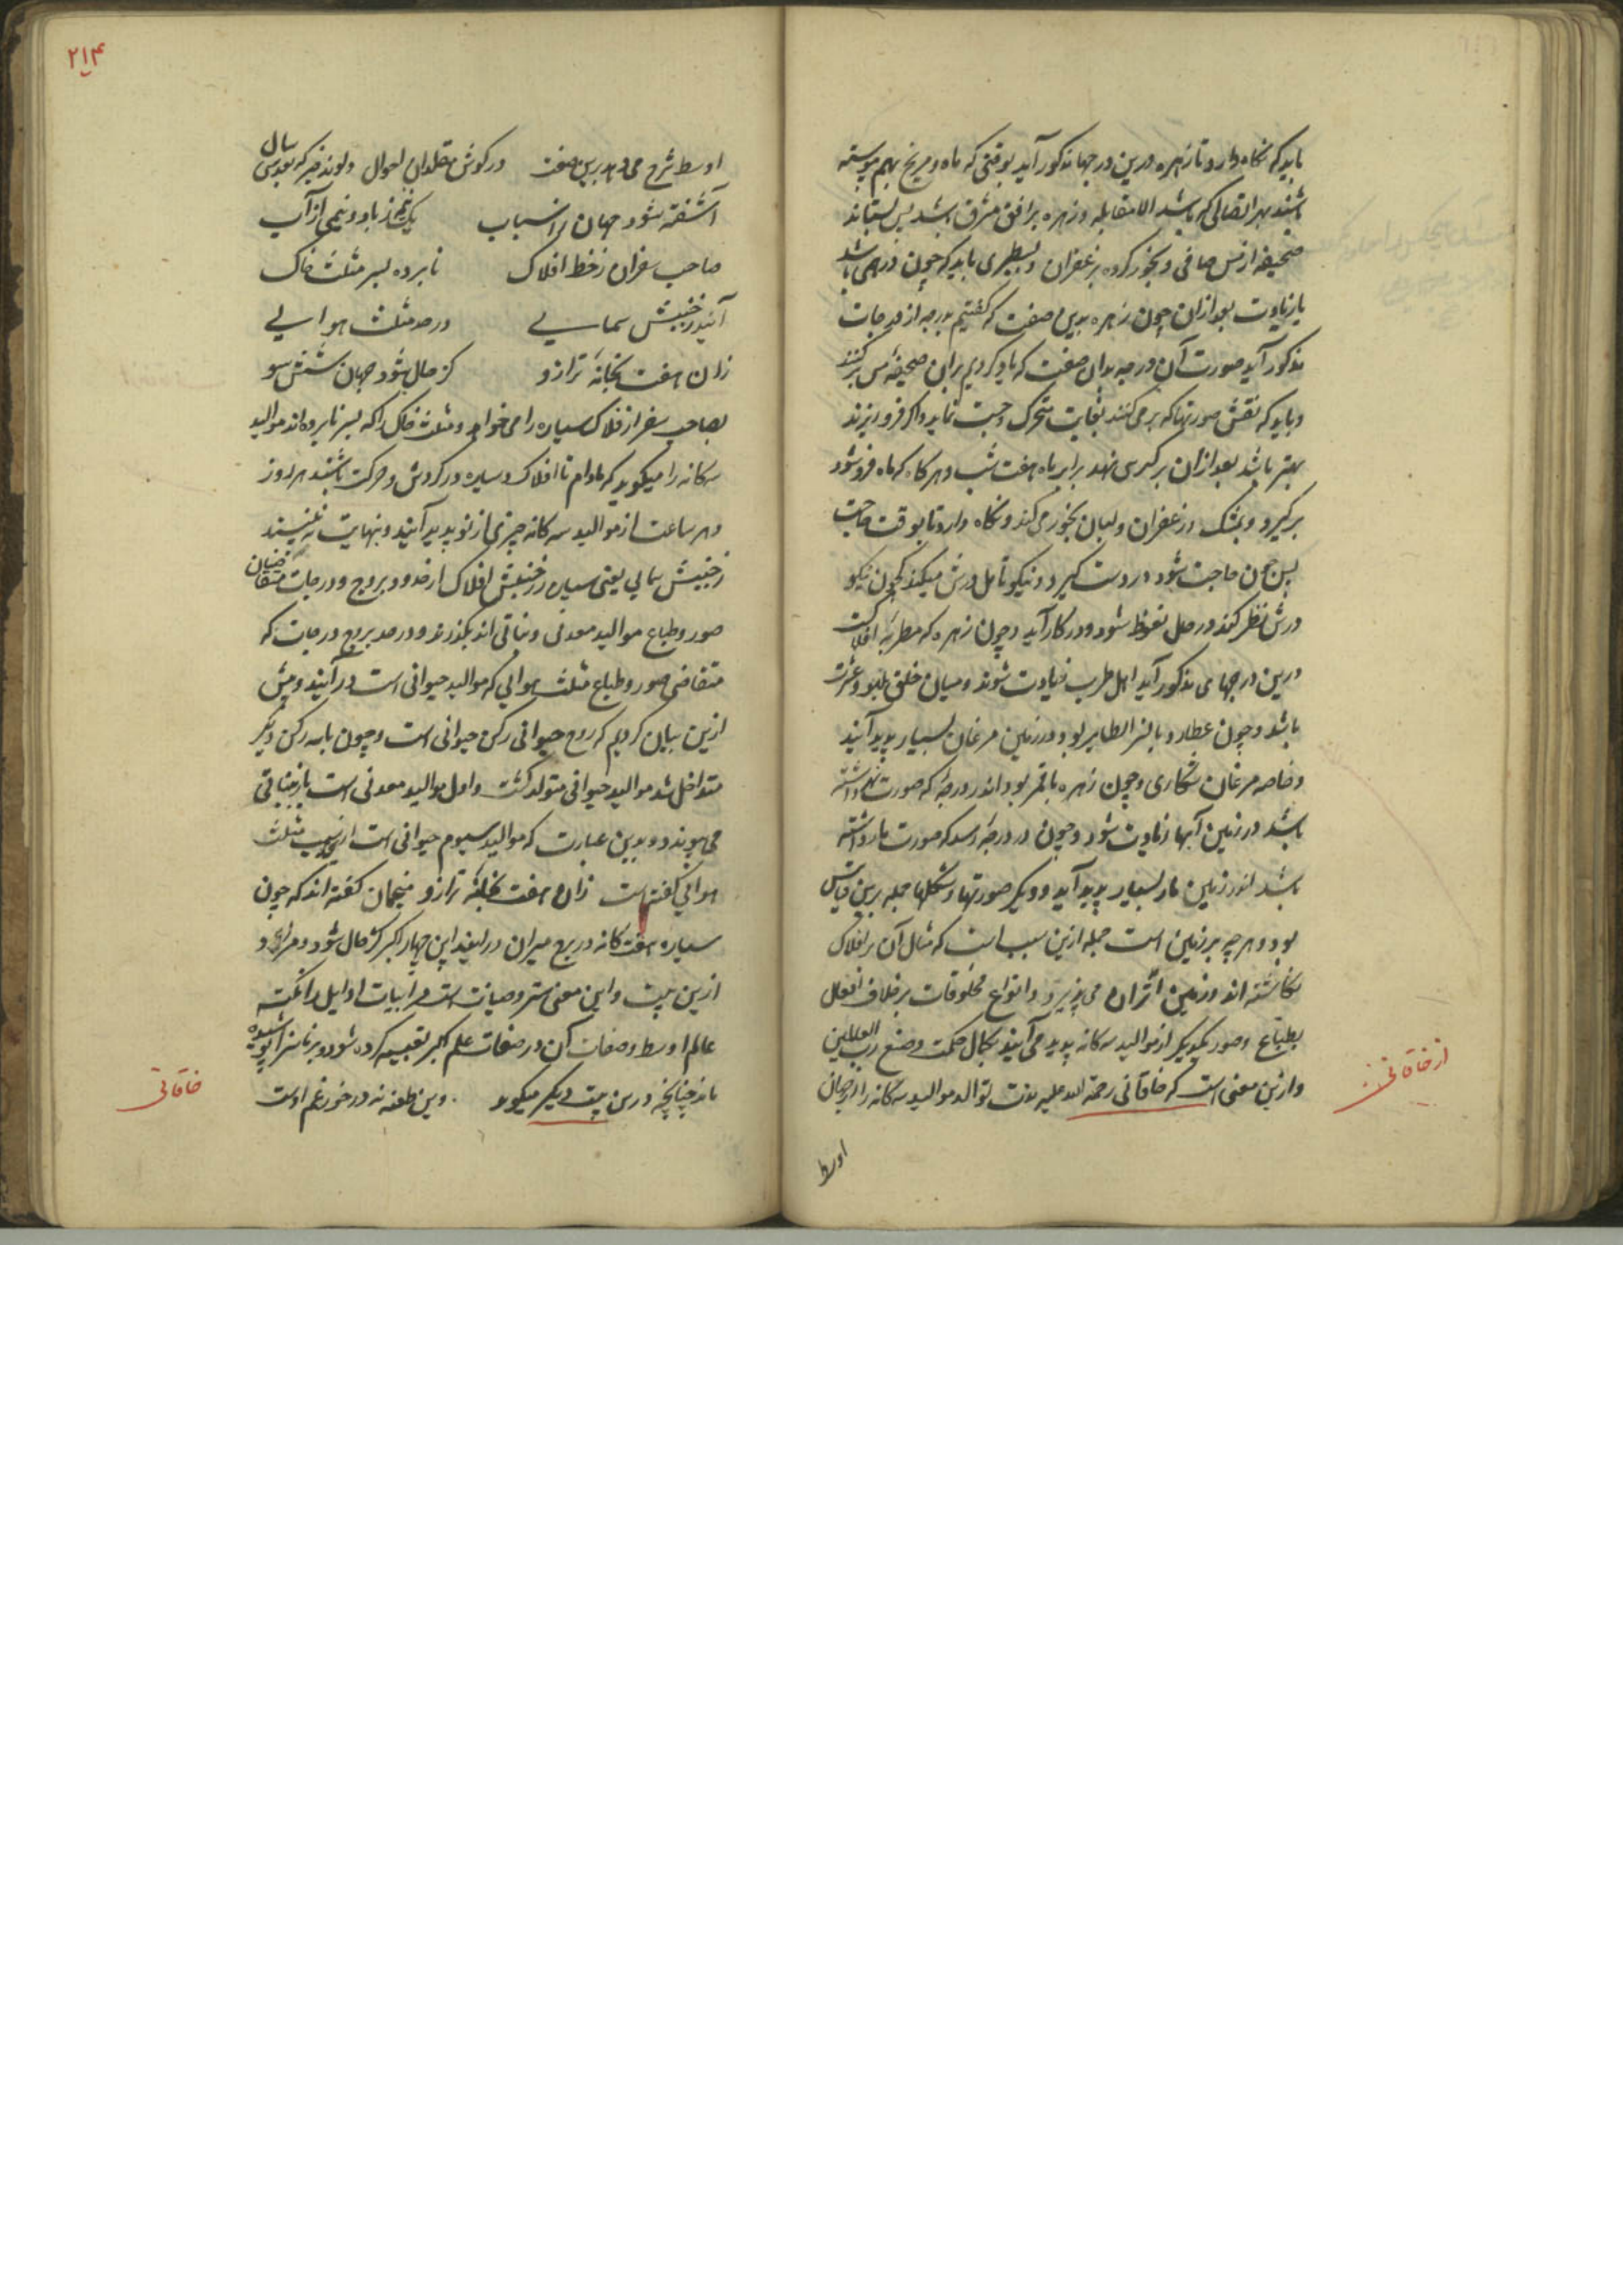 باید که نگاه دارد تا زهره درین درجها مذکور آید بوقتی که ماه و مریخ بهم پیوسته
باشند بهر اتصالی که باشد الا مقابله و زهره بر افق مشرق باشد پس بستاند
صحیفه از مس صافی و بخور کرده بزعفران و بسطبری باید که چون درهمی باشد
یا زیادت بعد از آن چون زهره بدین صفت که گفتیم بدرجه از درجات
مذکور آید صورت آن درجه بدان صفت که یاد کردیم بران صحیفه مس برکنند
و باید که نقش صورتها که بر می‌کنند بغایت متحرک و جست نماید و اگر فرو ریزند
بهتر باشد بعد از آن بر کرسی نهد برابر ماه هفت شب و هر گاه که ماه فرو شود
برگیرد و بمشک و زعفران و لبان بخور می کند و نگاه دارد تا بوقت حاجت
پس چون حاجت شود در دست گیرد و نیکو تامل درش میکند که چون نیکو
درش نظر کند در حال نعوظ شود و در کار آید و چون زهره که مطربه افلاک است
درین درجهای مذکور آید اهل طرب زیادت شوند و میان خلق لهو و عشرت
باشد و چون عطارد با نسر الطایر بود در زمین مرغان بسیار پدید آیند
و خاصه مرغان شکاری و چون زهره با قمر بود اندر درجه که صورت نهر داشته
باشد در زمین آبها زیادت شود و چون در درجه رسد که صورت مار داشته
باشد اندر زمین مار بسیار پدید آید و دیگر صورتها و شکلها جمله برین قیاس
بود و هر چه بر زمین است جمله ازین سبب است که مثال آن بر افلاک
نگاشته اند و زمین اثر آن می پذیرد و انواع مخلوقات بر خلاف افعال
بطباع و صور یکدیگر از موالید سه گانه پدید می آیند بکمال حکمت و صنع رب العالمین
و ازین معنی است که خاقانی رحمة الله علیه توالد موالید سه گانه را از جهان
از خاقانی
اوسط
۲۱۴
اوسط شرح می دهد برین صفت در گوش مقلدان احوال
آشفته شود جهان ز اسباب یک نیم ز باد و نیمی از آب
صاحب سفران ز خط افلاک نابرده بسر مثلث خاک
آیند ز جنبش سمایی در حد مثلث هوایی
زان هفت بخانه ترازو کز حال شود جهان شش سو
بصاحب سفر از فلاک سیاره را می خواهد و مثلث خاک را که بسر نابرده اند موالید
سه گانه را میگوید که مادام تا افلاک و سیاره در گردش و حرکت باشند هر روز
و هر ساعت از موالید سه گانه چیزی از نو پدید آیند و بنهایت
ز جنبش سمایی یعنی سیاره ز جنبش افلاک از حدود بروج و درجات متقاضیان
صور و طباع موالید معدنی و نباتی اند بگذرند و در حد بروج درجات که
متقاضی صور و طباع مثلث هوایی که موالید حیوانی است در آیند و پیش
ازین بیان کردیم که روح حیوانی رکن حیوانی است و چون با سه رکن دیگر
متداخل شد موالید حیوانی متولد گشت و اول موالید معدنی است باز بنباتی
می پیوندد و بدین عبارت که موالید سیوم حیوانی است ازین سبب مثلث
هوایی گفته است زان هفت بخانه ترازو منجمان گفته اند که چون
سیاره هفت گانه در برج میزان در آیند این جهان اکبر از حال شود و مراد او
ازین بیت و این معنی ستر و صیانت است در ابیات اوایل را نکته
عالم اوسط و صفات آن در صفات علم اکبر تعبیه کرده شود و بر ناسزا پوشیده
ماند چنانچه درین بیت دیگر میگوید وین طعنه نه در خور غم اوست
خاقانی